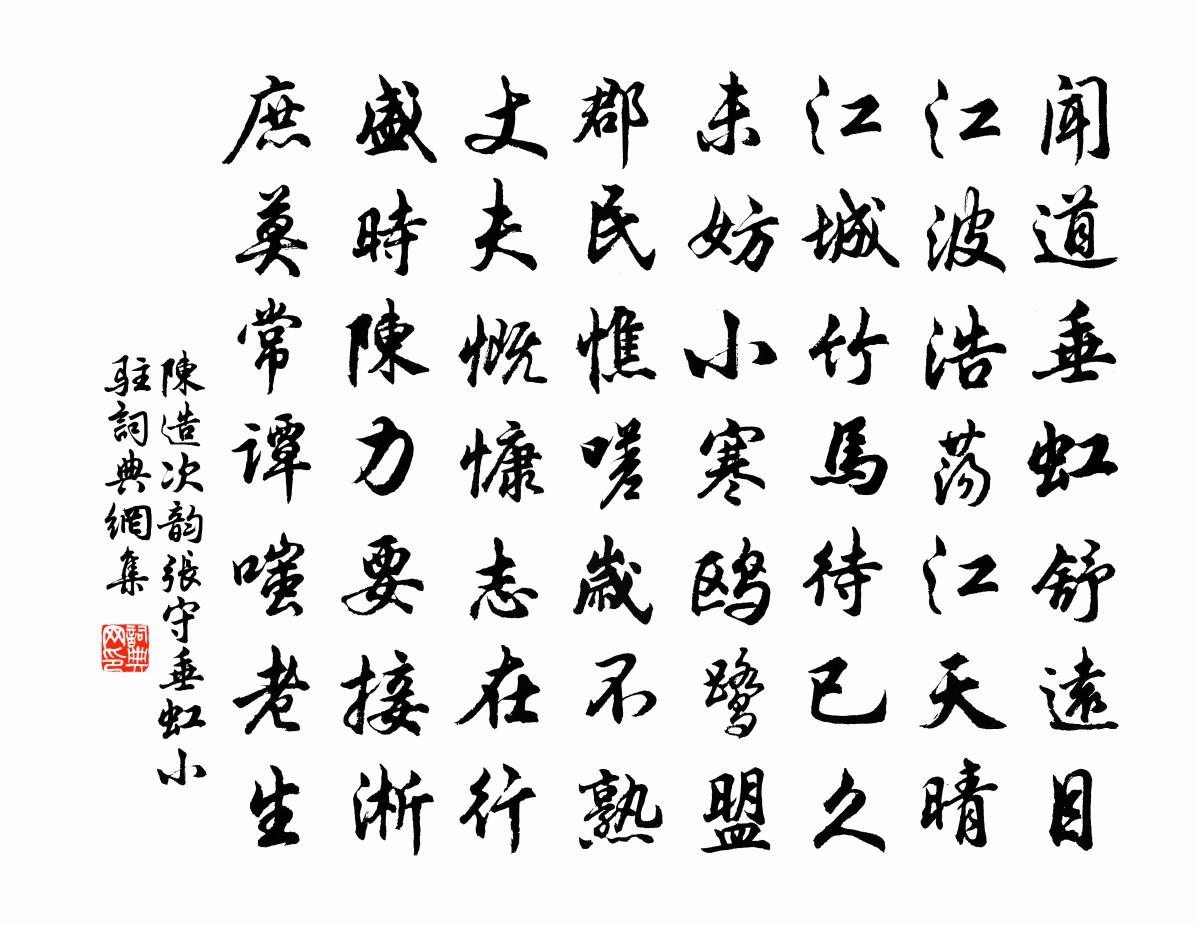 聞道垂虹舒遠目
江波浩荡江天晴
江城竹馬待已久
未妨小寒鸥鹭盟
郡民憔嗟歲不熟
丈夫慨慷志在行
盛時陳力要接淅
庶莫常譚嗤老生
陳造次韵張守垂虹小
駐詞典網集
詞典网印